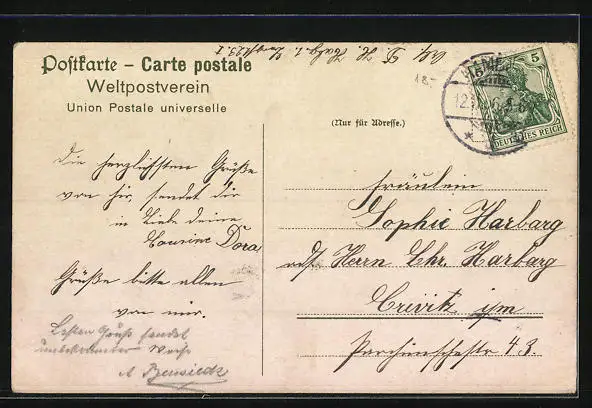 Postkarte – Carte postale
Weltpostverein
Union Postale universelle
(Nur für Adresse.)
5
DEUTSCHES REICH
Die herzlichsten Grüße
von hir, sendet dir
in Liebe deine
Cousine Dora
Grüße bitte allen
von mir.
Besten Gruß sendet
unbekannter Weise
Fräulein
Sophie Harbarg
adr. Herrn Chr. Harbarg
Crivitz i/m
Parchimschestr 43.